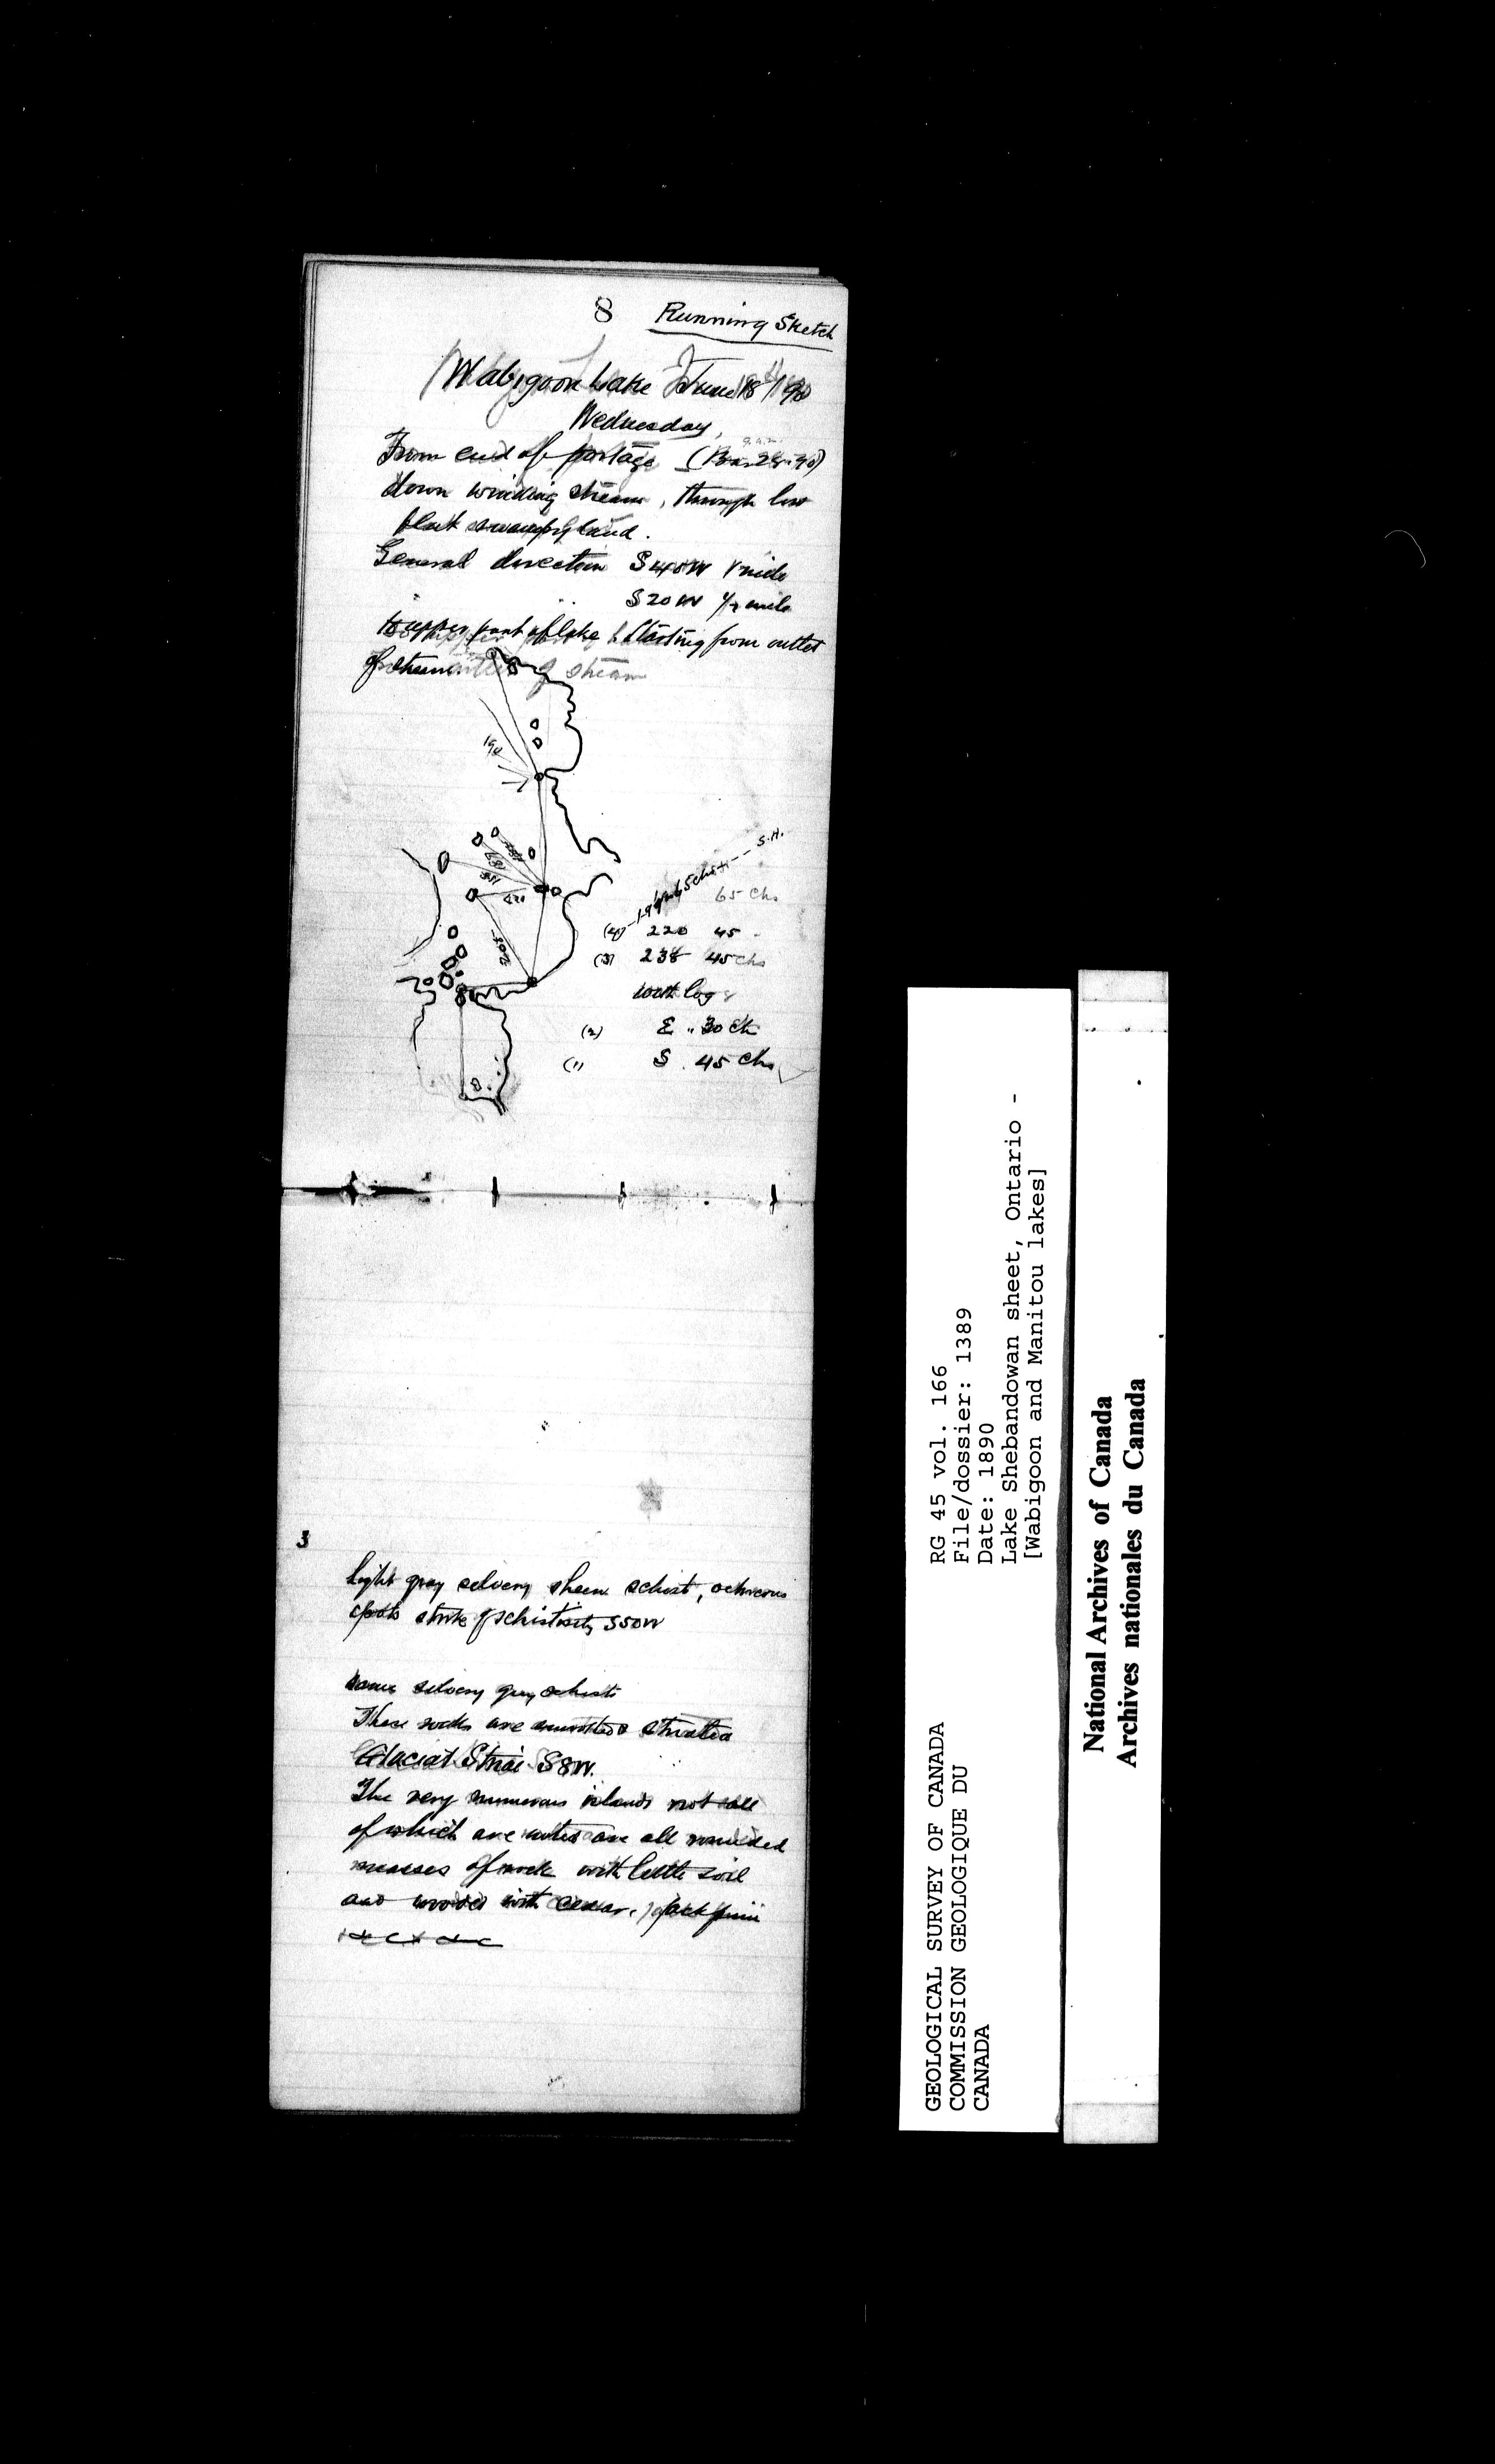 8 Running Sketch
Wabigoon Lake June 18th/90
Wednesday,
9 a.m.
From end of portage (Bar. 28.40)
down winding stream, through low
flat swampy land.
General direction S40W 1 mile
" .. S20W 1/2 mile
to upper part of lake & starting from outlet
of stream
190
220
205
S.H.
65 chs
(4) 220 45 "
(3) 238 45 chs
with log
(2) E .. 30 ch
(1) S . 45 chs
3
light gray silvery sheen schist, ochreous
spots strike of schistosity S50W
same silvery grey schists
These rocks are smoothed & striated
Glacial Striae S8W.
The very numerous islands not all
of which are noted are all rounded
masses of rock with little soil
and wooded with cedar, jack pine
&c &c
GEOLOGICAL SURVEY OF CANADA
COMMISSION GEOLOGIQUE DU
CANADA
RG 45 vol. 166
File/dossier: 1389
Date: 1890
Lake Shebandowan sheet, Ontario -
[Wabigoon and Manitou lakes]
National Archives of Canada
Archives nationales du Canada